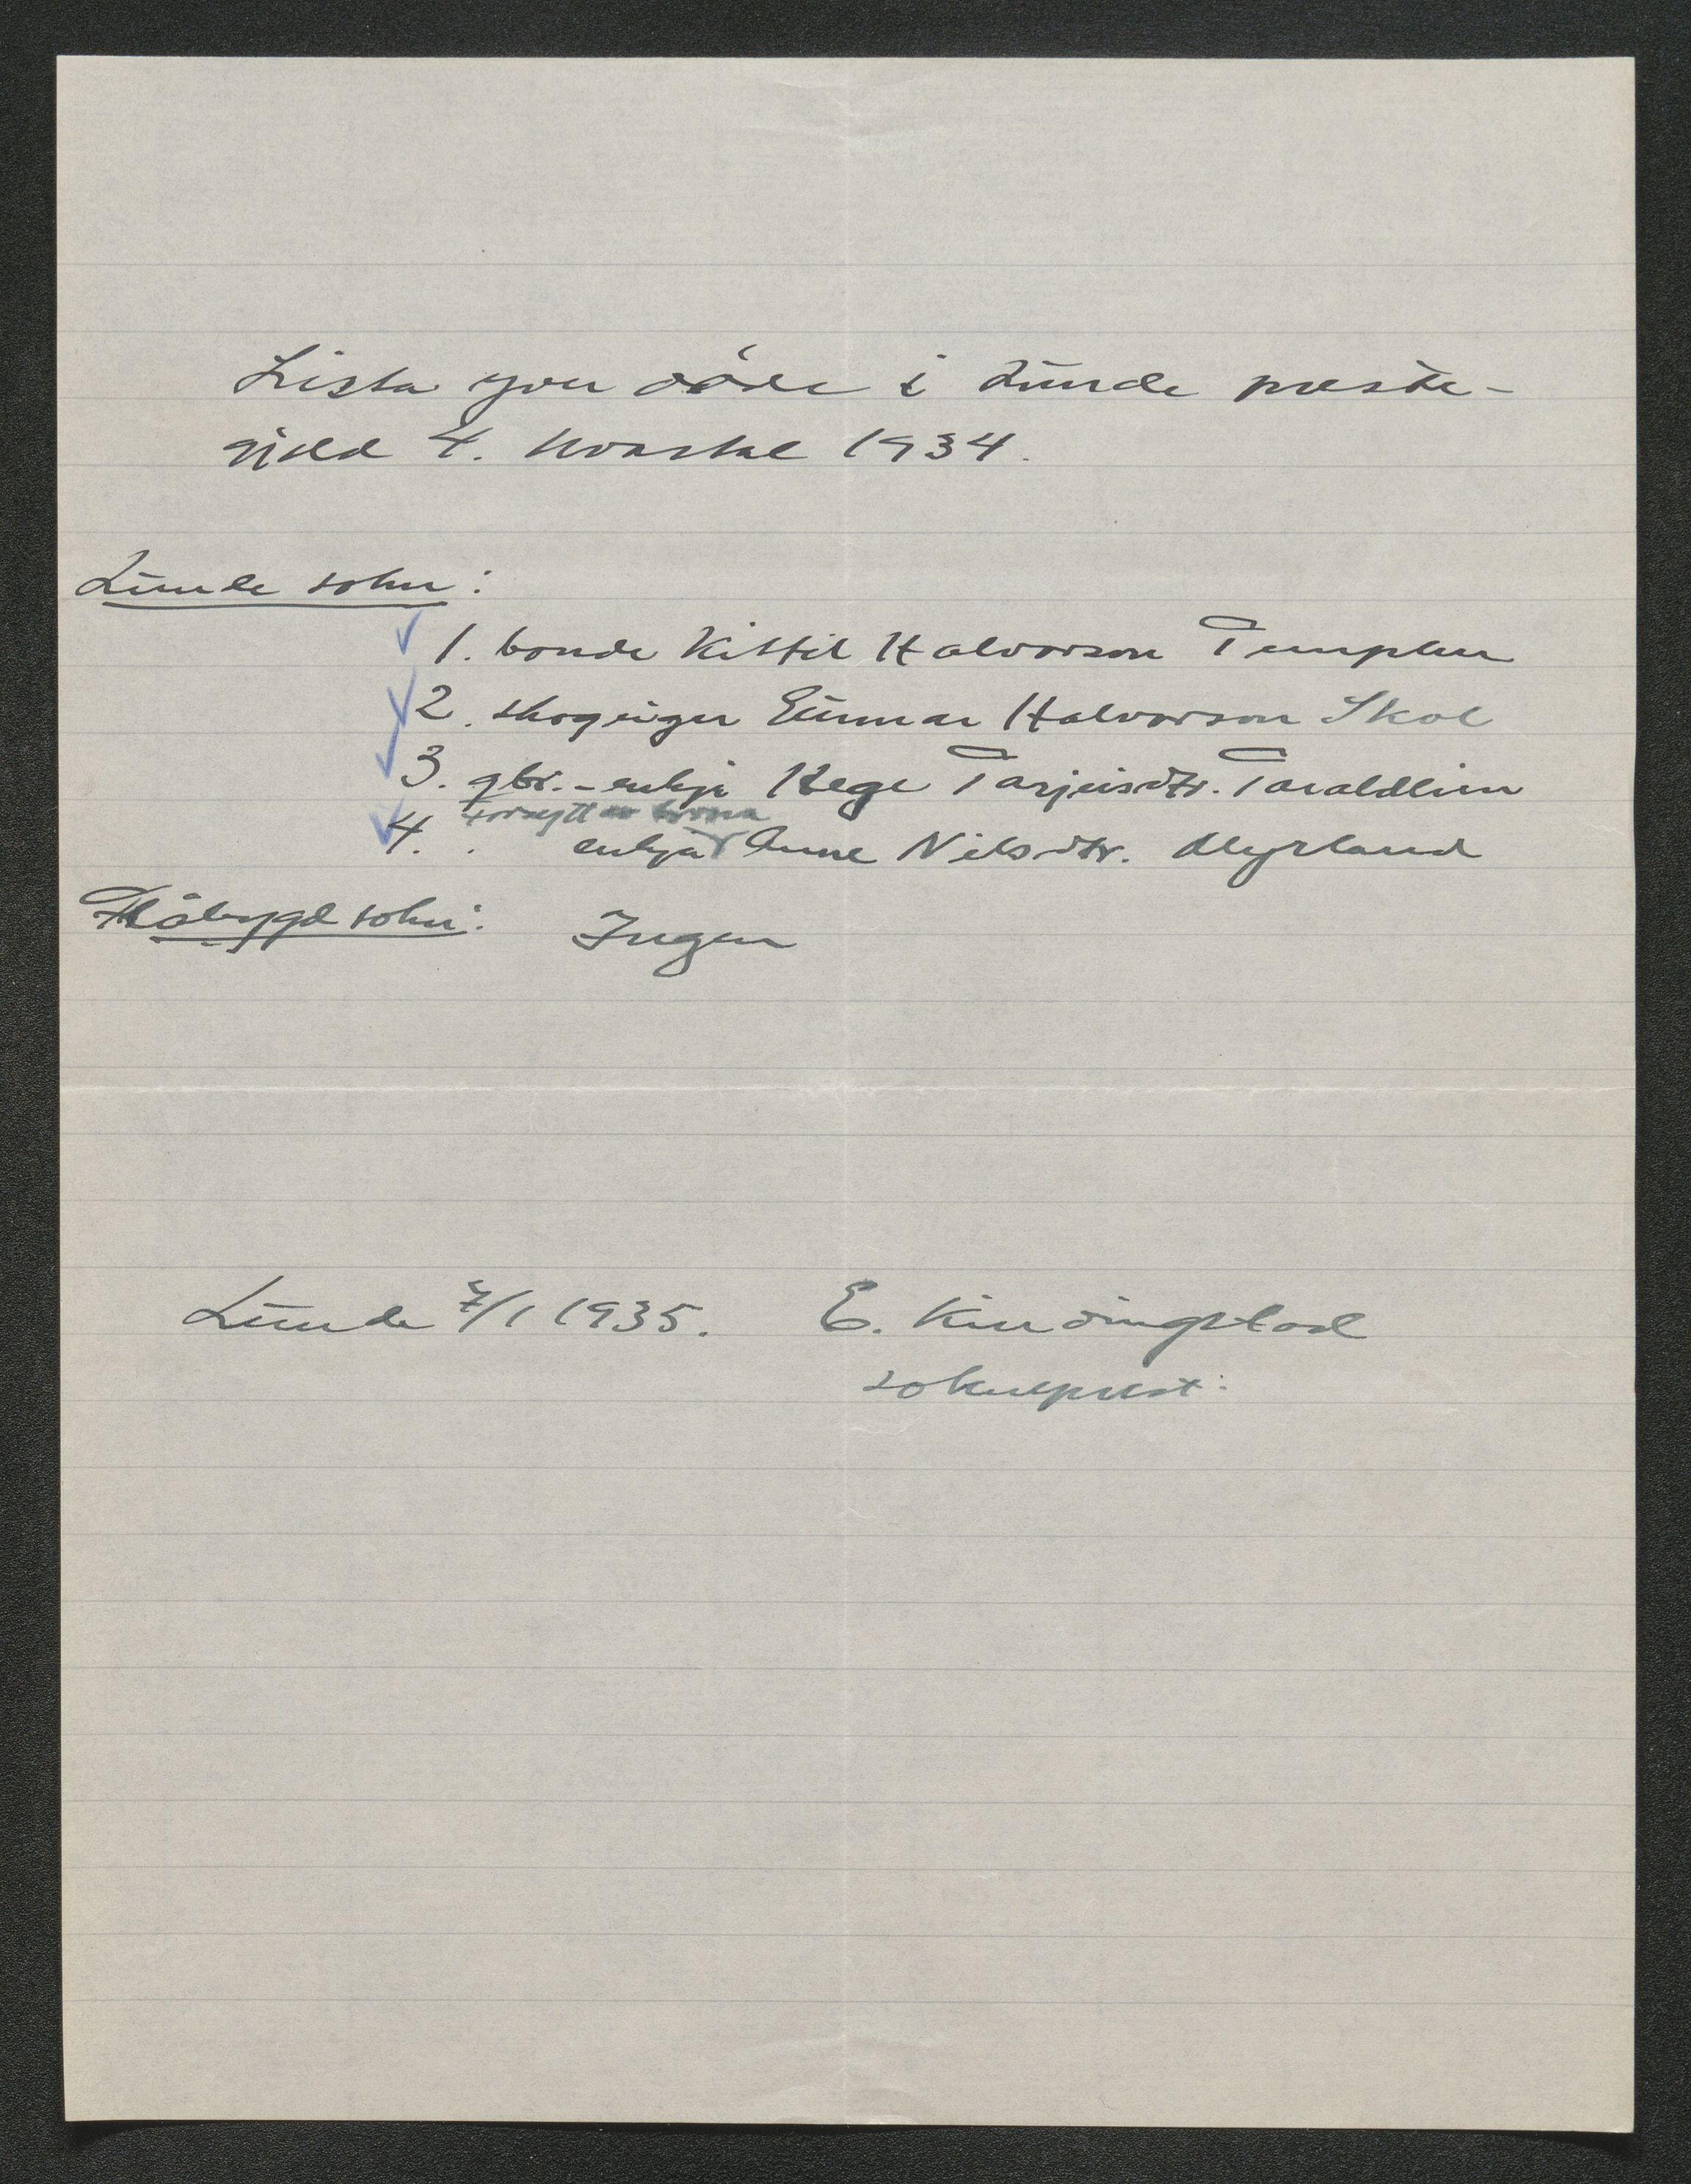 Lista yver døde i Lunde preste-
gjeld 4. kvartal 1934.
Lunde sokn:
1. bonde Kittil Halvorson Templen
2. skogeigar Gunnar Halvorson Skoe
3. gbr.-enkja Hege Tarjeisdtr. Taraldlien
forsytt av borna
4. enkja Anne Nilsdtr. Myrland
Flåbygd sokn: Ingen
Lunde 7/1 1935. E. Kindingstad
sokneprest.